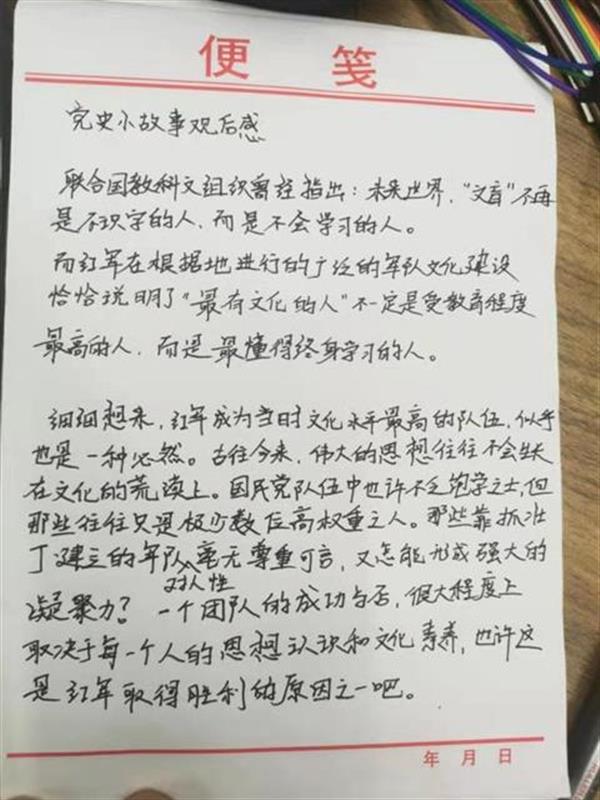 便 笺
党史小故事观后感
联合国教科文组织曾经指出：未来世界，“文盲”不再
是不识字的人，而是不会学习的人。
而红军在根据地进行的广泛的军队文化建设
恰恰说明了“最有文化的人”不一定是受教育程度
最高的人，而是最懂得终身学习的人。
细细想来，红军成为当时文化水平最高的队伍，似乎
也是一种必然。古往今来，伟大的思想往往不会生长
在文化的荒漠上。国民党队伍中也许不乏饱学之士，但
那些往往只是极少数位高权重之人。那些靠抓壮
丁建立的军队对人性毫无尊重可言，又怎能形成强大的
凝聚力？一个团队的成功与否，很大程度上
取决于每一个人的思想认识和文化素养，也许这
是红军取得胜利的原因之一吧。
年 月 日